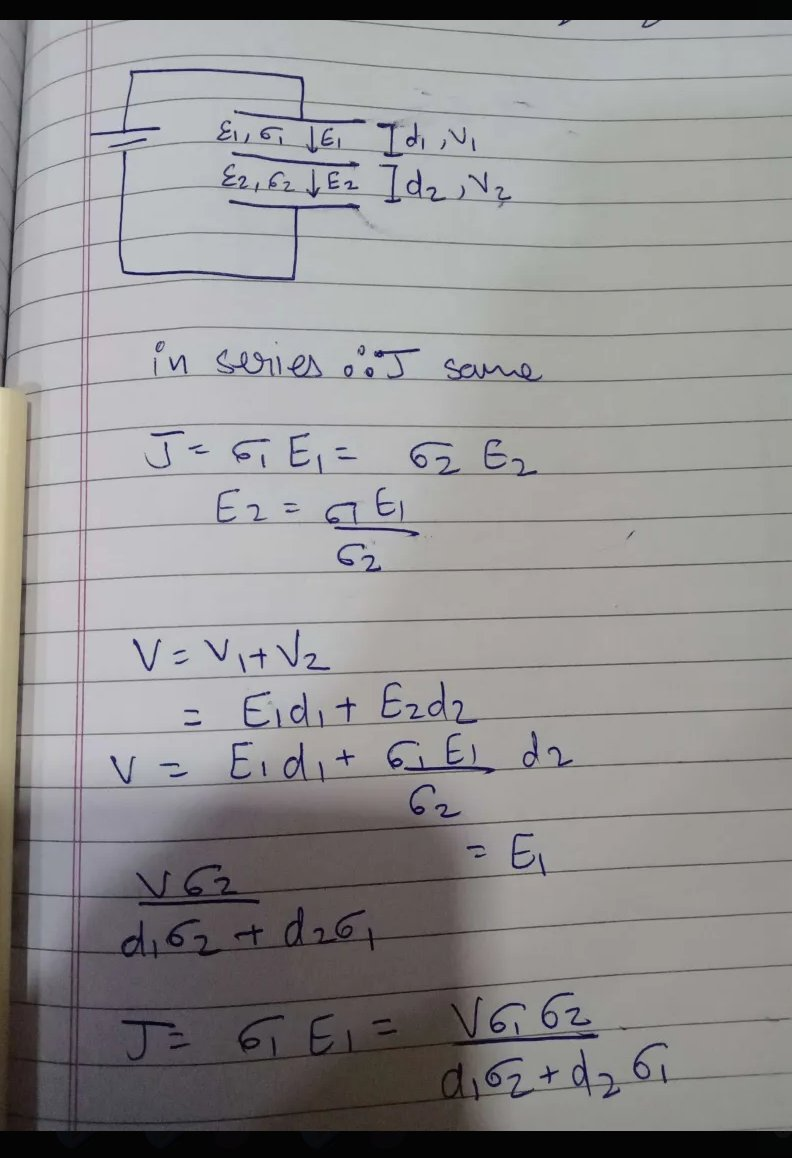 ε1, σ1 ↓E1 I d1, V1
ε2, σ2 ↓E2 I d2, V2
in series ∴ J same
J = σ1 E1 = σ2 E2
E2 = σ1 E1 / σ2
V = V1 + V2
= E1d1 + E2d2
V = E1d1 + σ1 E1 / σ2 d2
= E1
Vσ2 / d1σ2 + d2σ1
J = σ1 E1 = Vσ1σ2 / d1σ2 + d2σ1